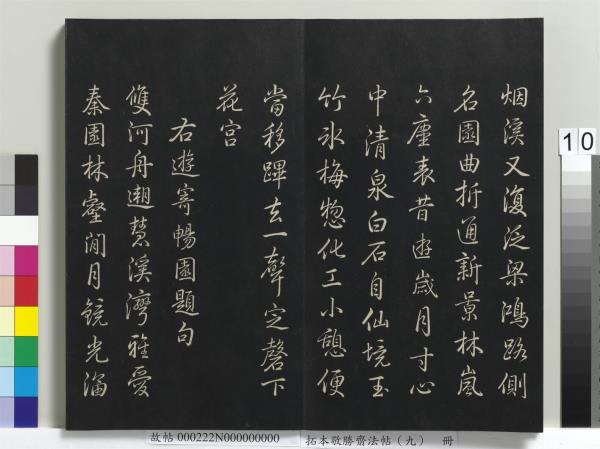 烟溪又復泛梁鴻路側
名園曲折通新景林嵐
六塵表昔遊歲月寸心
中清泉白石自仙境玉
竹冰梅惣化工小憩便
當移蹕去一聲定磬下
花宮
右遊寄暢園題句
雙河舟遡慧溪灣雅愛
秦園林壑間月鏡光涵
10
故帖 000222N000000000
拓本敬勝齋法帖（九） 冊